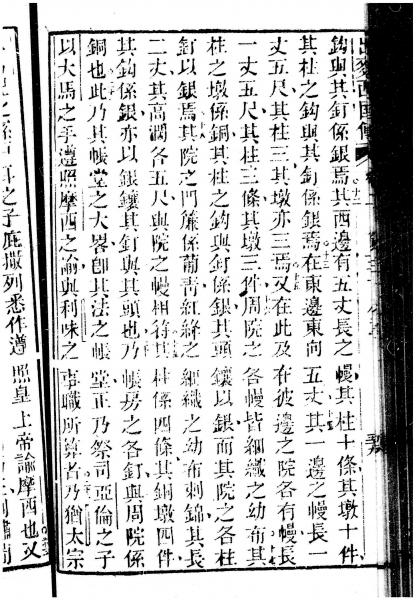 鈎與其釘係銀焉其西邊有五丈長之幔其柱十條其墩十件
其柱之鈎與其釘係銀焉在東邊東向五丈其一邊之幔長一
丈五尺其柱三其墩亦三焉又在此及在彼邊之院各有幔長
一丈五尺其柱三條其墩三件周院之各幔皆細織之幼布其
柱之墩係銅其柱之鈎與釘係銀其頭鑲以銀而其院之各柱
釘以銀焉其院之門簾係葡青紅絳之細織之幼布刺錦其長
二丈其高濶各五尺與院之幔相符其柱係四條其銅墩四件
其鈎係銀亦以銀鑲其釘與其頭也乃帳房之各釘與周院係
銅也此乃其帳堂之大畧卽其法之帳堂正乃祭司亞倫之子
以大馬之手遵照摩西之諭與利味之事職所算者乃猶太宗
之子庇撒列悉作遵照皇上帝諭摩西也又